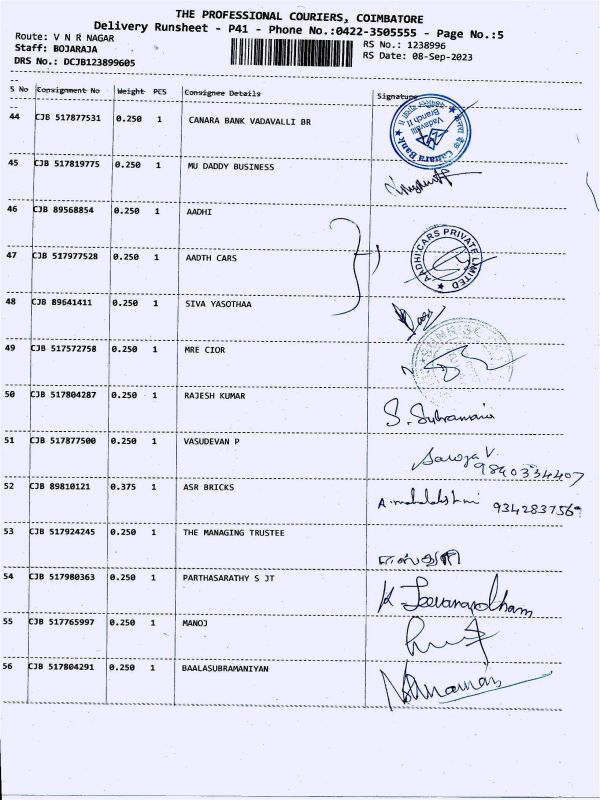 THE PROFESSIONAL COURIERS, COIMBATORE
Delivery Runsheet - P41 - Phone No.:0422-3505555 - Page No.:5
Route: V N R NAGAR
RS No.: 1238996
Staff: BOJARAJA
RS Date: 08-Sep-2023
DRS No.: DCJB123899605
S No Consignment No Weight PCS Consignee Details Signature
44 CJB 517877531 0.250 1 CANARA BANK VADAVALLI BR
Canara Bank
Vadavalli
Branch II
45 CJB 517819775 0.250 1 MU DADDY BUSINESS
46 CJB 89568854 0.250 1 AADHI
47 CJB 517977528 0.250 1 AADTH CARS
AADHI CARS PRIVATE LIMITED
48 CJB 89641411 0.250 1 SIVA YASOTHAA
49 CJB 517572758 0.250 1 MRE CIOR
50 CJB 517804287 0.250 1 RAJESH KUMAR
51 CJB 517877500 0.250 1 VASUDEVAN P
Saroja V.
9840334407
52 CJB 89810121 0.375 1 ASR BRICKS
A. mahalakshmi 9342837569
53 CJB 517924245 0.250 1 THE MANAGING TRUSTEE
54 CJB 517980363 0.250 1 PARTHASARATHY S JT
55 CJB 517765997 0.250 1 MANOJ
56 CJB 517804291 0.250 1 BAALASUBRAMANIYAN